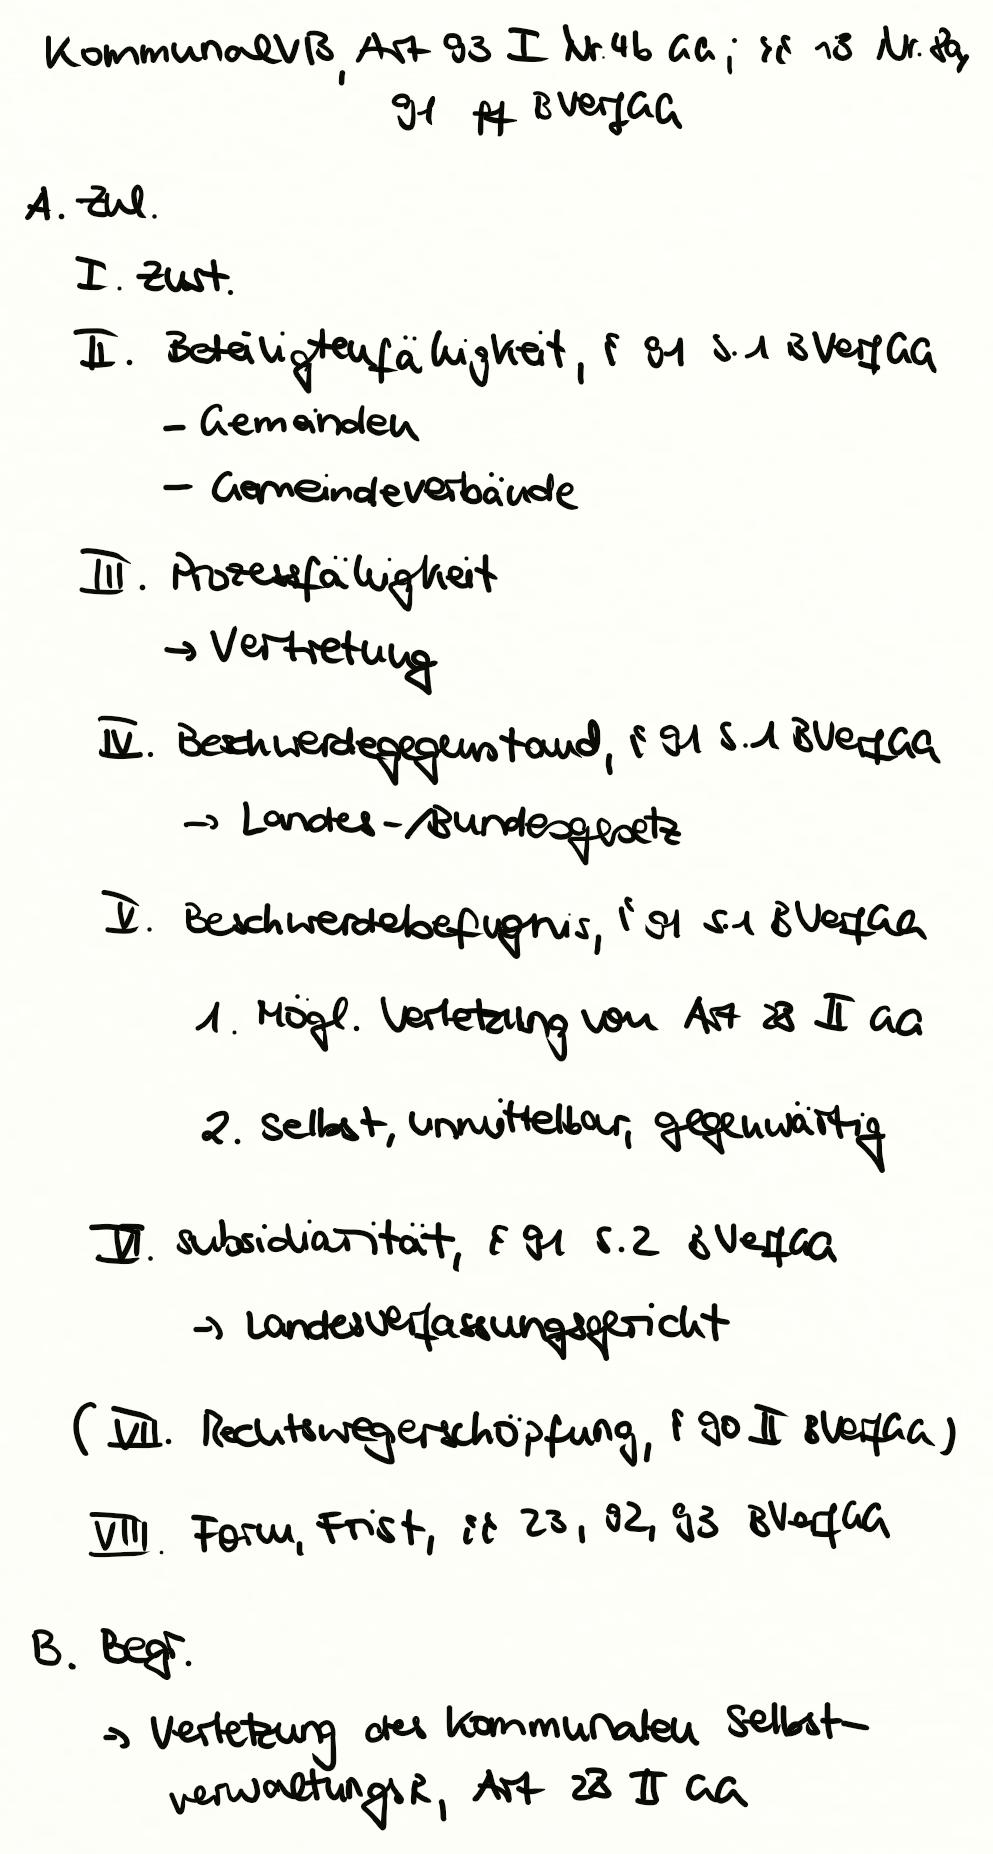 KommunalVB, Art 93 I Nr. 4b GG; §§ 13 Nr. 8a,
91 ff BVerfGG
A. Zul.
I. Zust.
II. Beteiligtenfähigkeit, § 91 S. 1 BVerfGG
- Gemeinden
- Gemeindeverbände
III. Prozessfähigkeit
→ Vertretung
IV. Beschwerdegegenstand, § 91 S. 1 BVerfGG
→ Landes-/Bundesgesetz
V. Beschwerdebefugnis, § 91 S. 1 BVerfGG
1. Mögl. Verletzung von Art 28 II GG
2. Selbst, unmittelbar, gegenwärtig
VI. Subsidiarität, § 91 S. 2 BVerfGG
→ Landesverfassungsgericht
(VII. Rechtswegerschöpfung, § 90 II BVerfGG)
VIII. Form, Frist, §§ 23, 92, 93 BVerfGG
B. Begr.
→ Verletzung des kommunalen Selbst-
verwaltungsR, Art 28 II GG